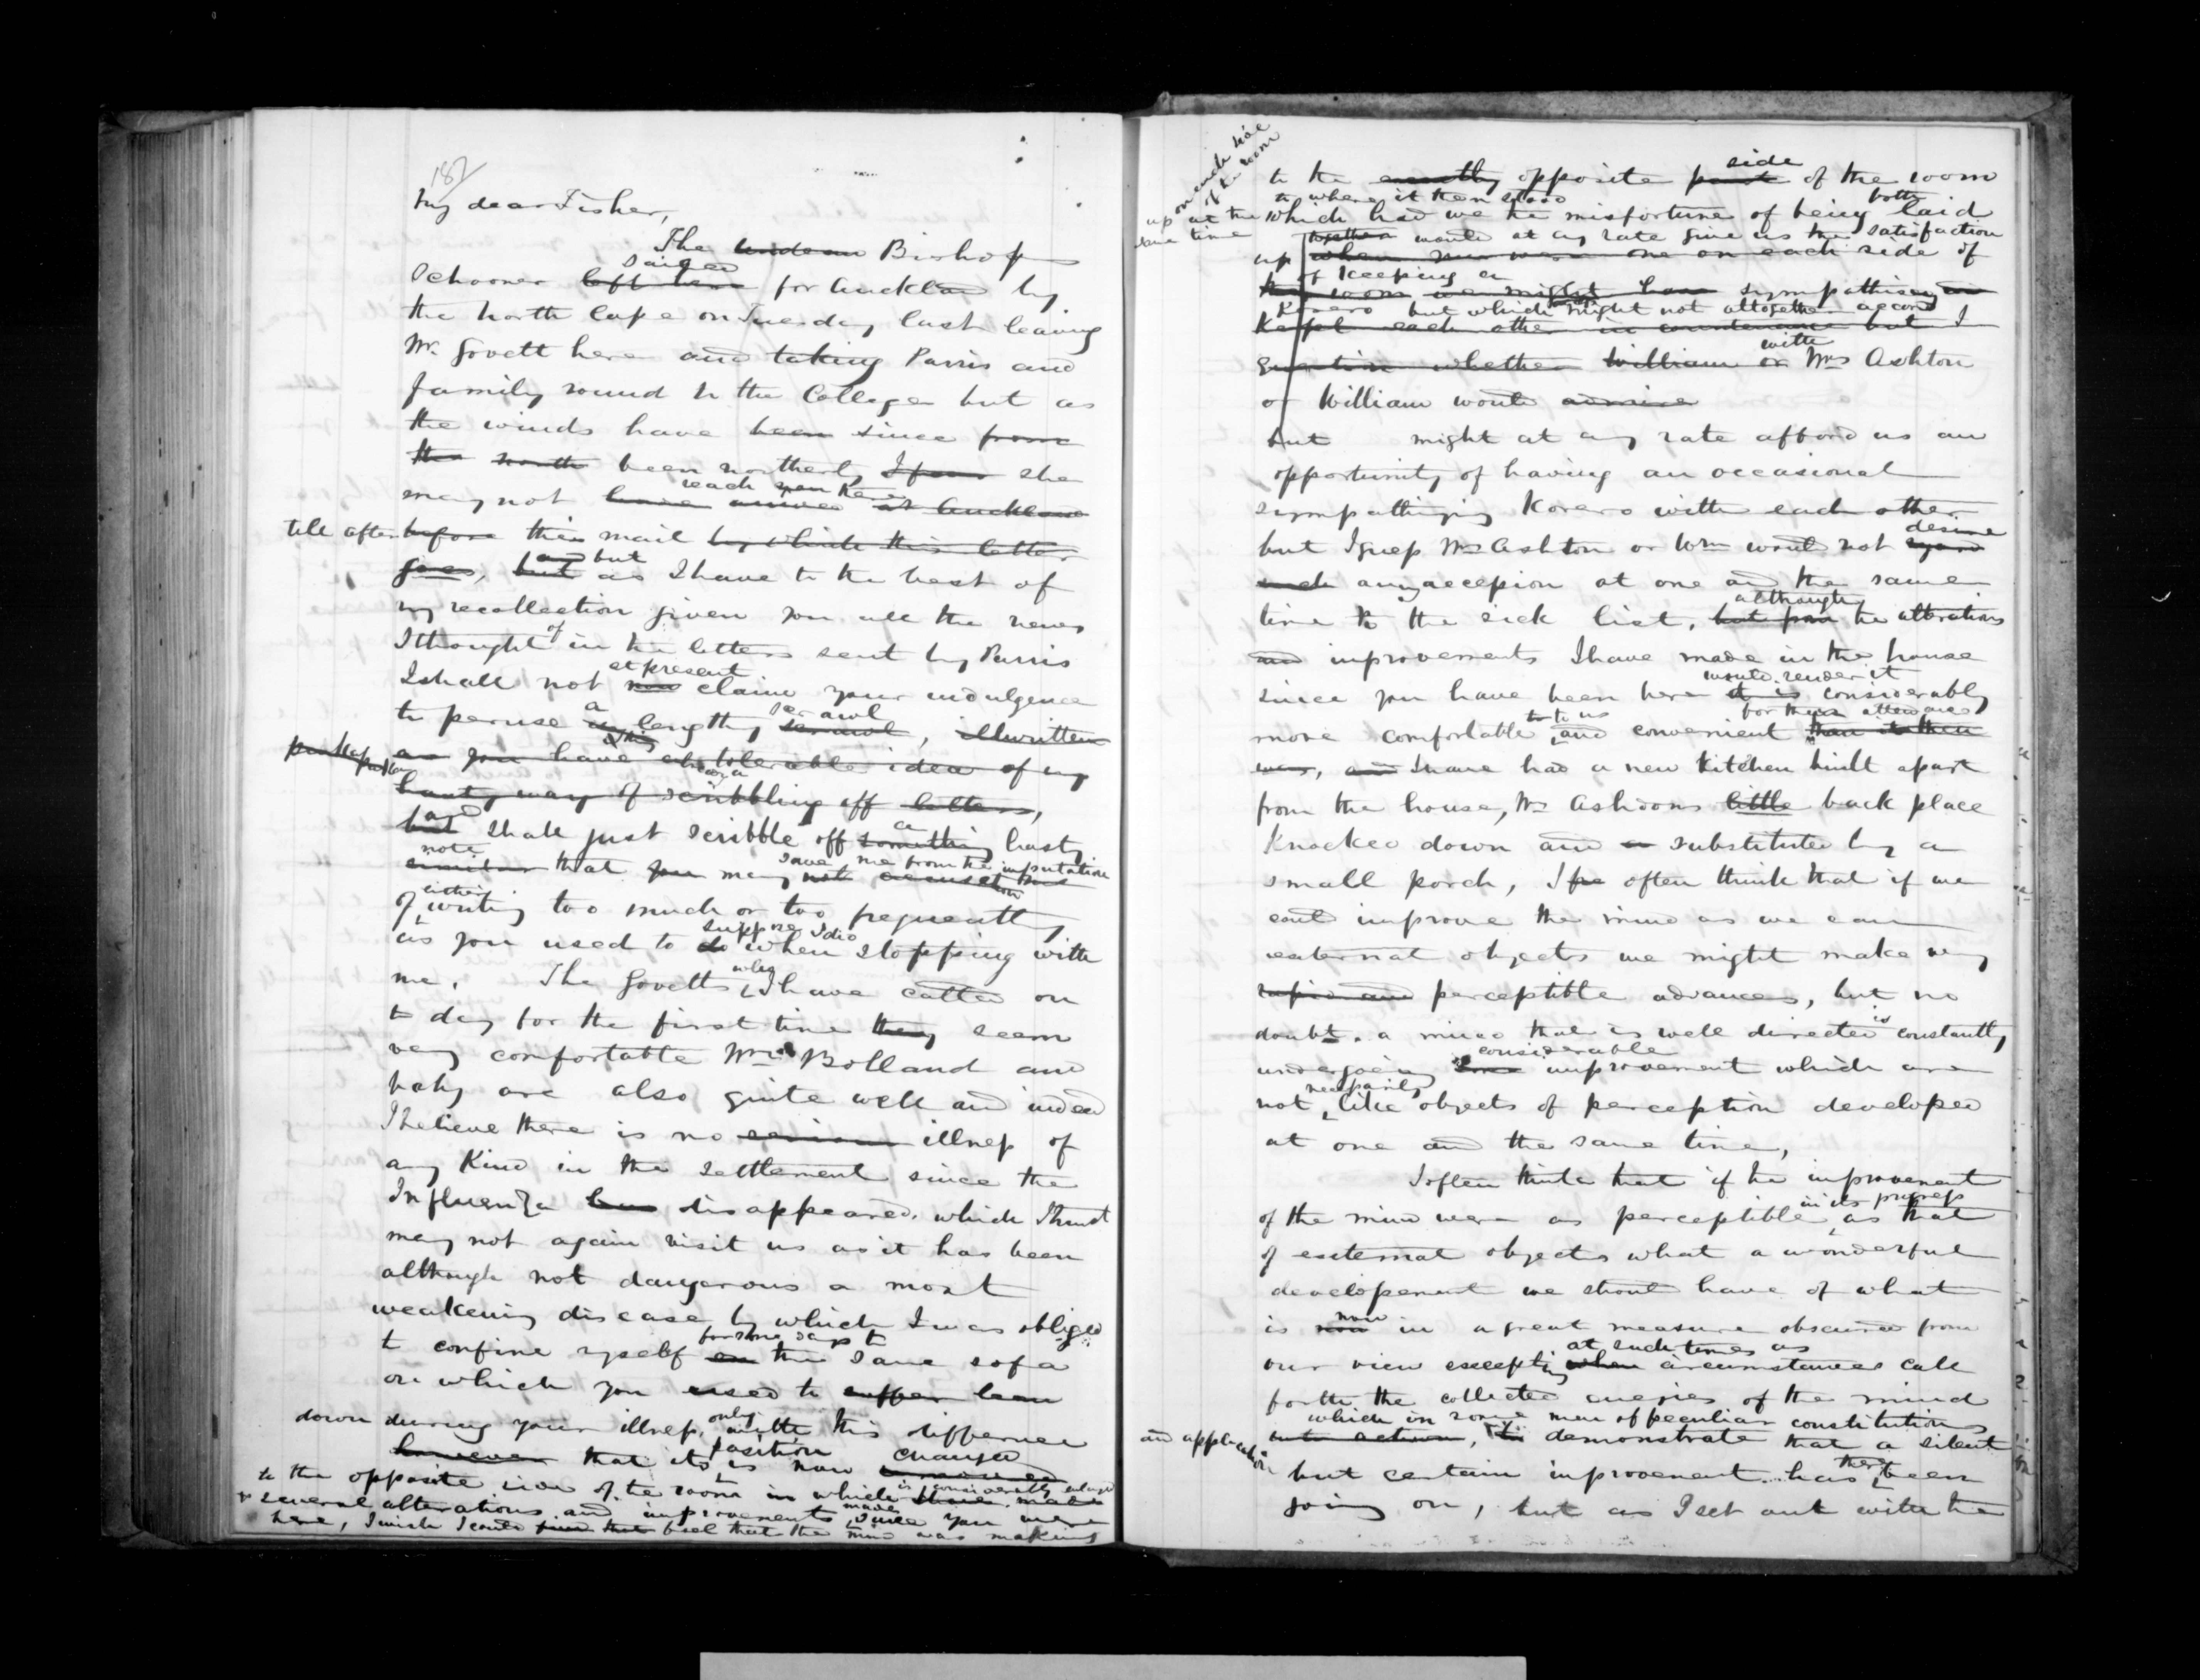 187
My dear Fisher,
The Undean Bishops
sailed
Schooner left here for Auckland by
the North Cape on Tuesday last leaving
Mr. Govett here and taking Parris and
family round to the College but as
the winds have been since from
the north been northerly I fear she
reach you there
may not have arrived at Auckland
till after before this mail by which this letter
and but
goes, but as I have to the best of
my recollection given you all the news
I thought of in the letters sent by Parris
at present
I shall not now claim your indulgence
a scrawl
to peruse a lengthy scrawl, illwritten
perhaps as you have a tolerable idea of my
hasty way of scribbling off letters,
and a
but shall just scribble off something hasty
note save me from the imputation
similar that you may not accuse
either
of writing too much or too frequently
suppose I did
as you used to do when stopping with
whom
me. The Govetts I have called on
to day for the first time they seem
very comfortable Mrs Bolland and
baby are also quite well and indeed
I believe there is no serious illness of
any kind in the settlement since the
Influenza has disappeared, which I trust
may not again visit us as it has been
although not dangerous a most
weakening disease by which I was obliged
for some days to
to confine myself on the same sofa
on which you used to suffer lean
only
down during your illness, with this difference
position changed
however that its is now removed
is considerably enlarged
to the opposite side of the room in which I have made
made
several alterations and improvements since you were
here, I wish I could feel that the mind was making
on each side
of the room
side
to the exactly opposite part of the room
to where it then stood both
up at the same time which had we the misfortune of being laid
together would at any rate give us the satisfaction
up when one on each side of
of keeping a
the room we might have sympathising
Korero but which might not altogether accord
Kept each other in countenance but I
with
question whether William or Mrs Ashton
or William would
but might at any rate afford us an
opportunity of having an occasional
sympathizing Korero with each other
desire
but I guess Mrs Ashton or Wm would not
such any accession at one and the same
although
time to the sick list, but from the alterations
and improvements I have made in the house
would render it
since you have been here it is considerably
to us for their attendance
more comfortable and convenient than it then
was, and I have had a new kitchen built apart
from the house, Mrs Ashtons little back place
Knocked down and a substituted by a
small porch, I often think that if we
could improve the mind as we can
external objects we might make very
rapid and perceptible advances, but no
is
doubt, a mind that is well directed constantly
considerable
undergoing some improvement which are
necessarily
not like objects of perception developed
at one and the same time,
I often think that if the improvement
in its progress
of the mind were as perceptible as that
of external objects what a wonderful
developement we should have of what
now
is now in a great measure obscured from
at such times as
our view excepting when circumstances call
forth the collected energies of the mind
which in some men of peculiar constitutions
and application into action, to demonstrate that a silent
there
but certain improvement has been
going on, but as I set out with the